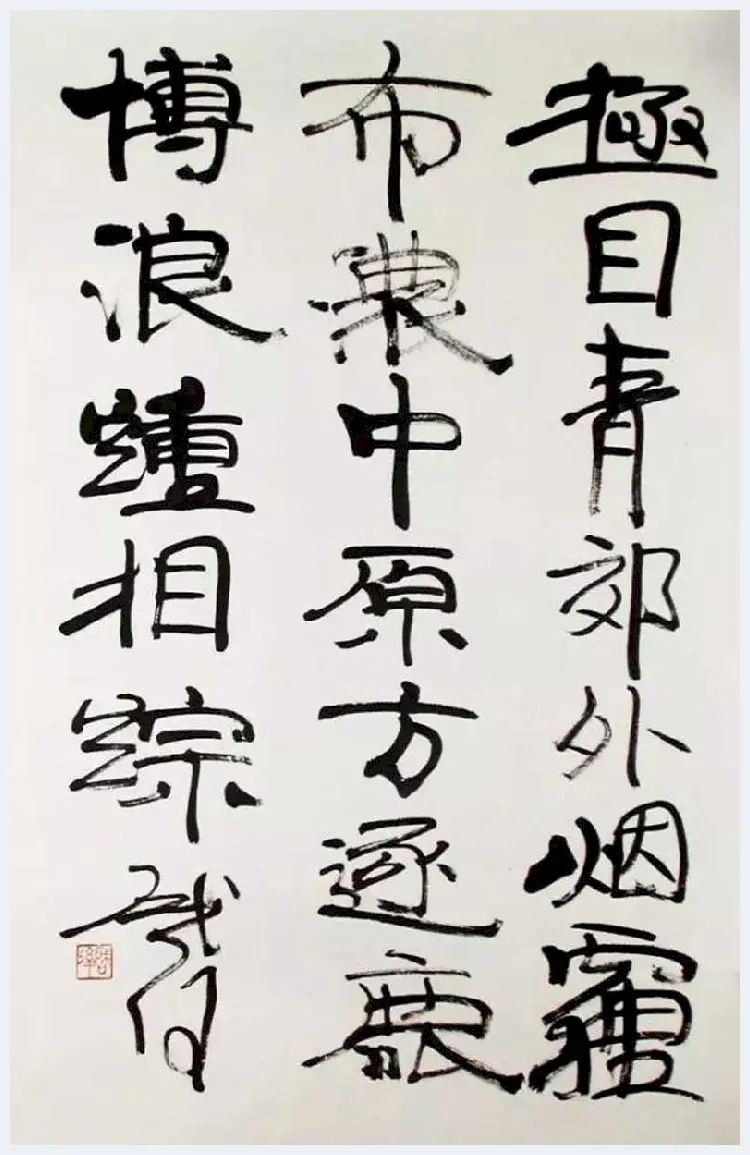 極目青郊外烟霾
布濃中原方逐鹿
博浪踵相踪